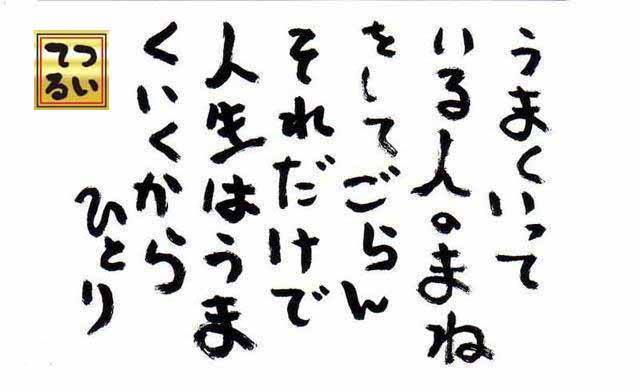 うまくいって
いる人のまね
をしてごらん
それだけで
人生はうま
くいくから
ひとり
つい
てる